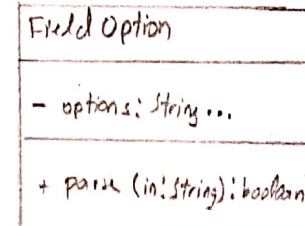 Field Option
- options: String...
+ parse (in: String): boolean